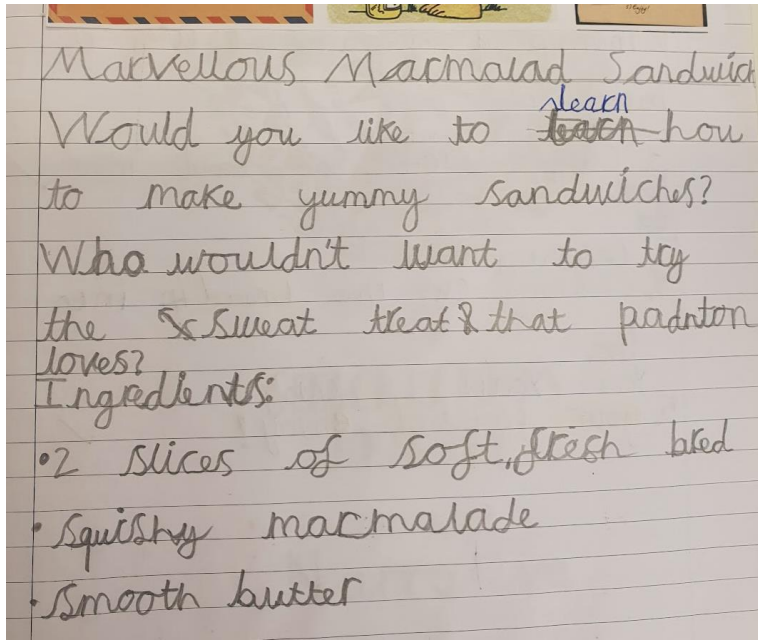 Marvellous Marmalad Sandwich
Would you like to learn how
to make yummy sandwiches?
Who wouldn't want to try
the sweat treat that padnton
loves?
Ingredients:
•2 slices of soft, fresh bred
•squishy marmalade
•smooth butter